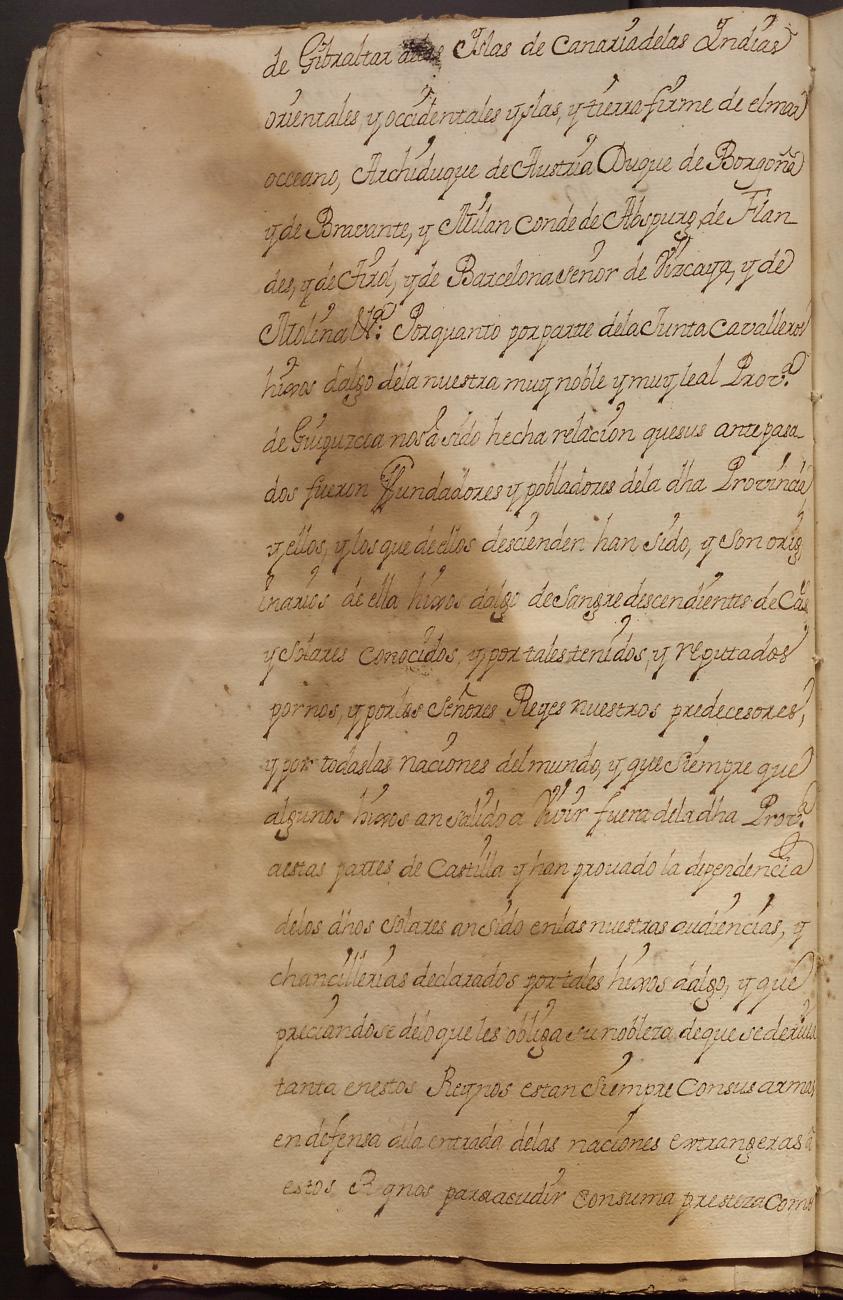 de Gibraltar de las Islas de Canaria de las Indias
orientales, y occidentales yslas, y tierra firme de el mar
occeano, Archiduque de Austria Duque de Borgoña
y de Bravante, y Milan Conde de Abspurg, de Flan
des, y de Tirol, y de Barcelona señor de Vizcaya, y de
Molina &ª: Por quanto por parte de la Junta Cavalleros
hixos dalgo de la nuestra muy noble y muy leal Prov.ª
de Guipuzcoa nos â sido hecha relacion que sus antepasa
dos fueron Fundadores y pobladores de la dha Provincia
y ellos, y los que de ellos descienden han sido, y son orig
inarios de ella hixos dalgo de sangre descendientes de Cas
y Solares conocidos, y por tales tenidos, y reputados
por nos, y por los señores Reyes nuestros predecesores,
y por todas las naciones del mundo, y que siempre que
algunos hixos an salido a Vivir fuera de la dha Prov.ª
a estas partes de Castilla y han provado la dependencia
de los dhos Solares an sido en las nuestras audiencias, y
chancillerias declarados por tales hixos dalgo, y que
preciandose de lo que les obliga su nobleza de que se deriva
tanta en estos Reynos estan siempre Con sus armas
en defensa de la entrada de las naciones extrangeras â
estos Reynos para acudir Con suma presteza como